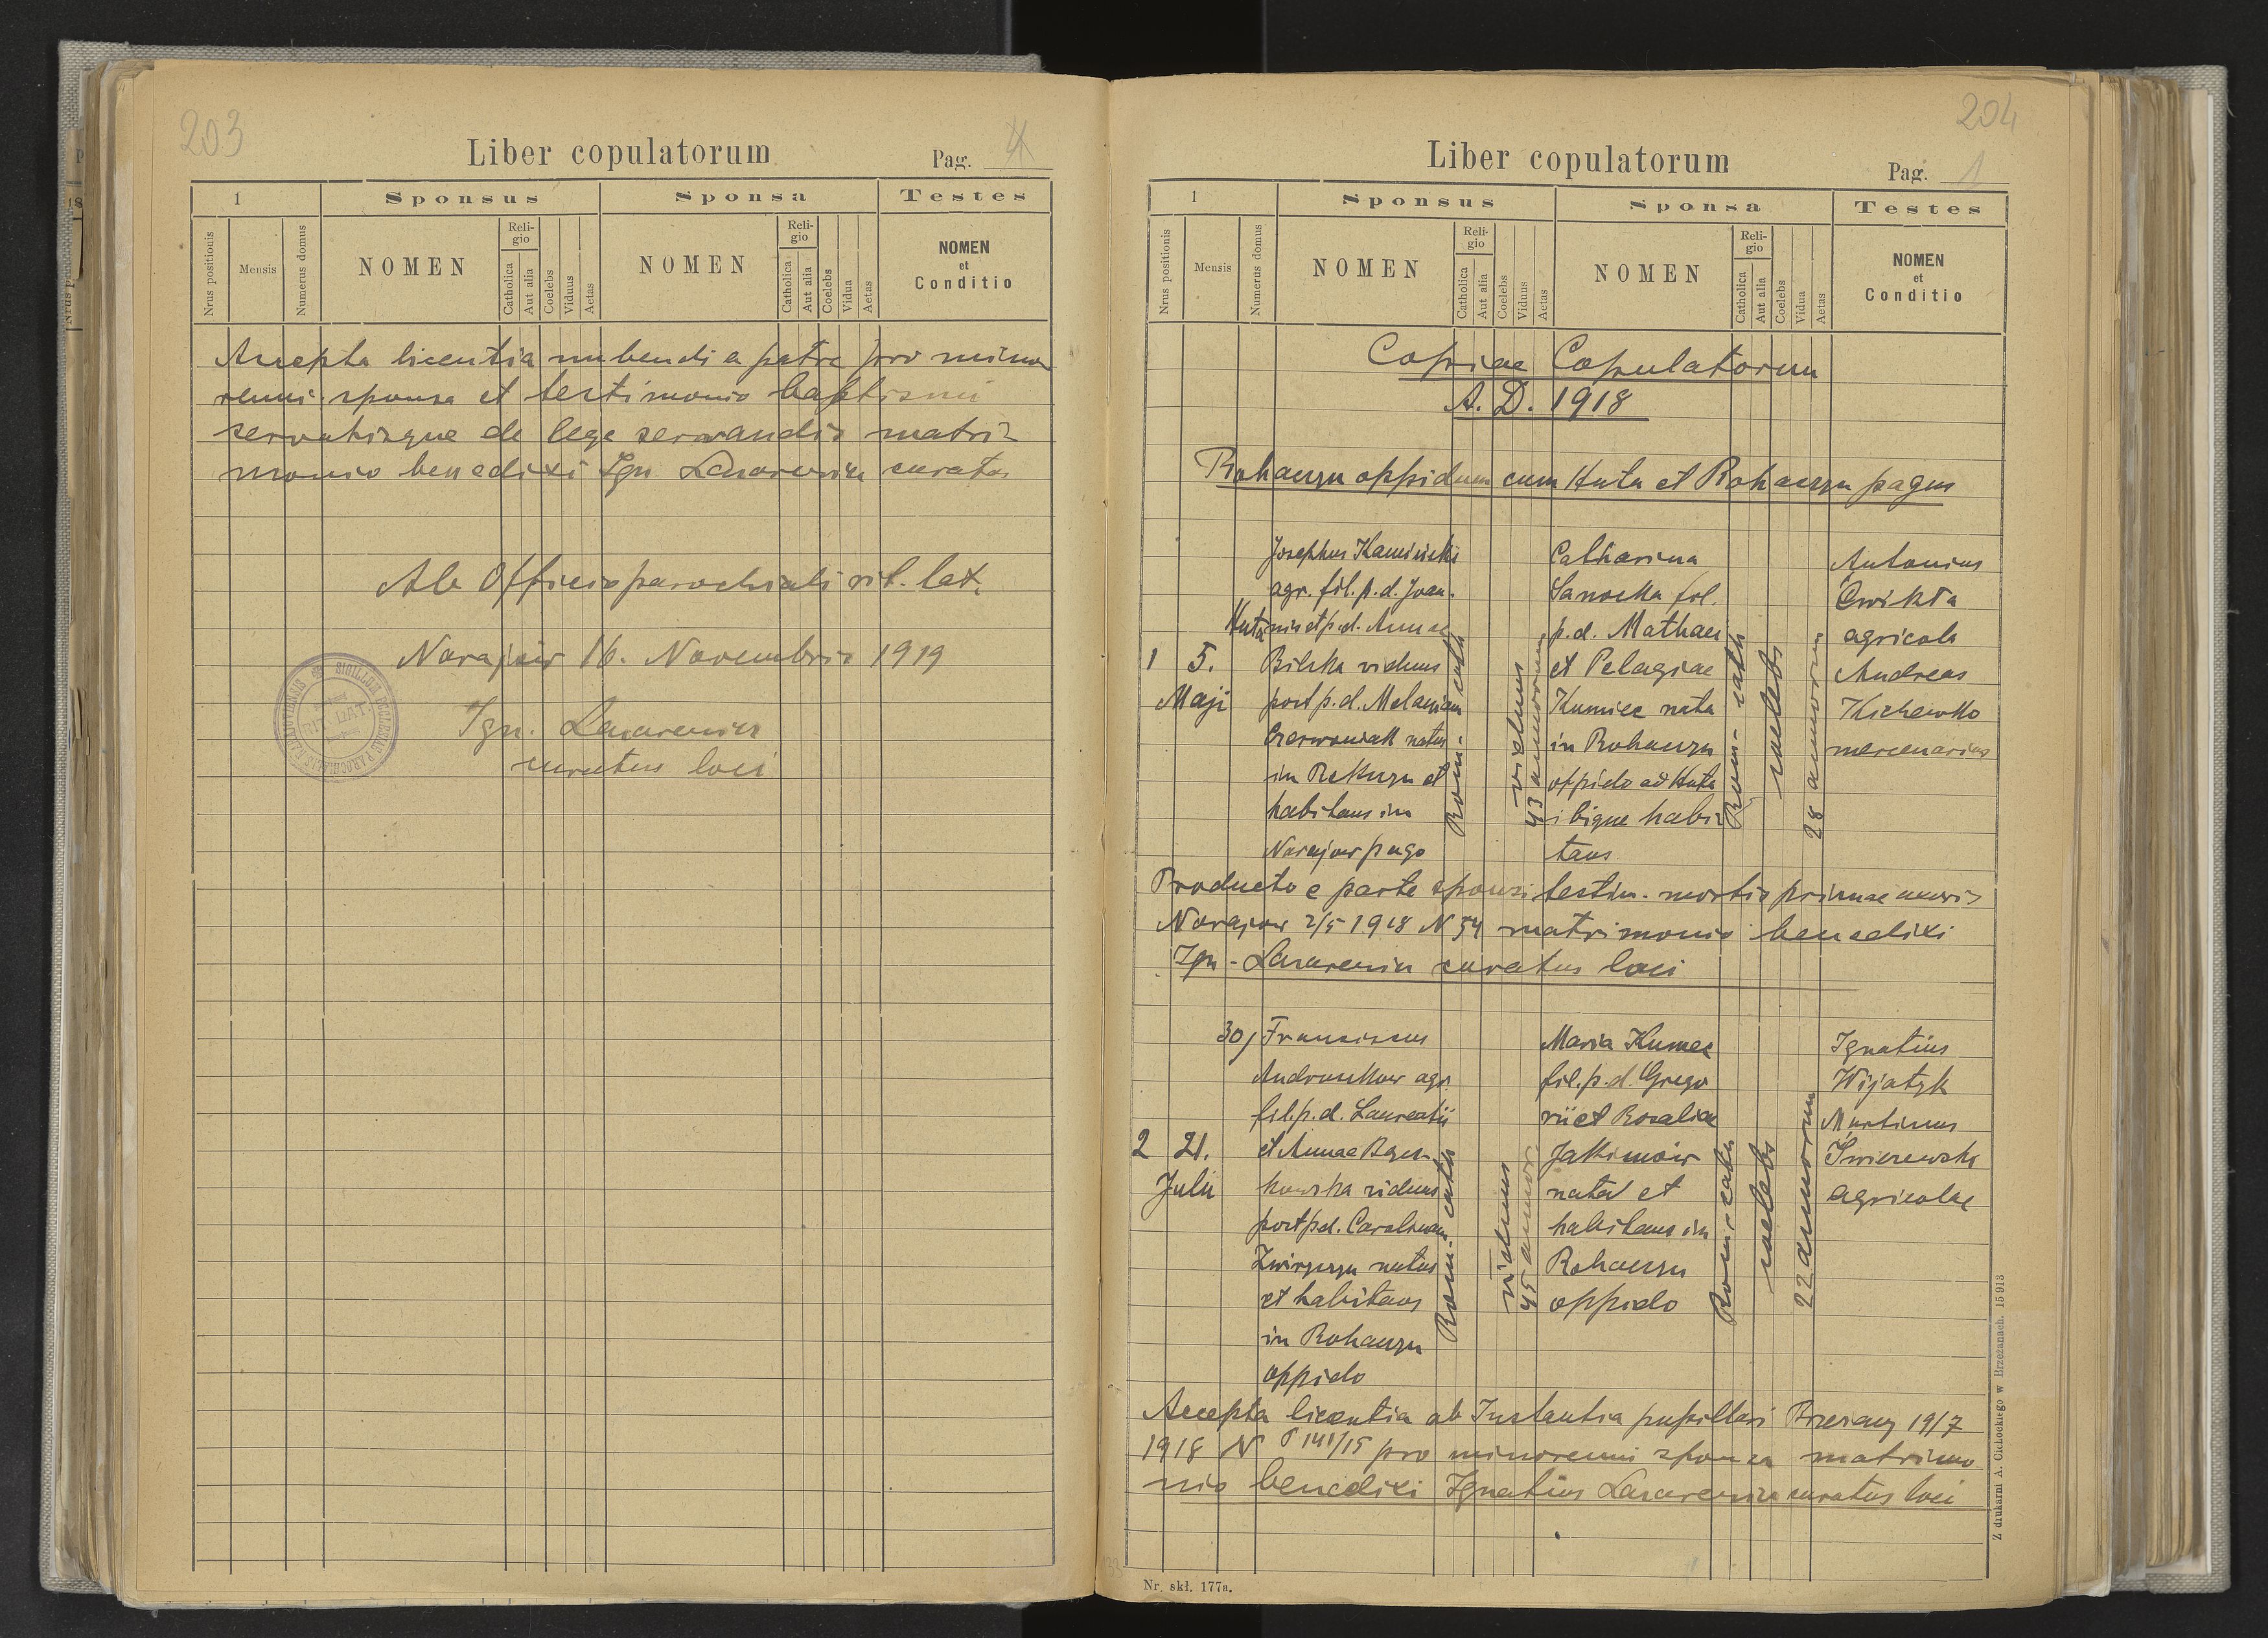 203
Liber copulatorum
Pag. 4
1
Sponsus
Sponsa
Testes
Nrus positionis
Mensis
Numerus domus
NOMEN
Religio
Catholica
Aut alia
Coelebs
Viduus
Aetas
NOMEN
Religio
Catholica
Aut alia
Coelebs
Vidua
Aetas
NOMEN
et
Conditio
Accepta licentia nubendi a patre pro mino
renni sponsa et testimonio baptismi
servatisque de lege servandis matri-
monio benedixi Ign. Lazarewicz curatus
Ab Officio parochiali rit. lat.
Narajów 16. Novembris 1919
Ign. Lazarewicz
curatus loci
SIGILLUM ECCLESIAE PAROCHIALIS
RIT. LAT.
204
Liber copulatorum
Pag. 1
1
Sponsus
Sponsa
Testes
Nrus positionis
Mensis
Numerus domus
NOMEN
Religio
Catholica
Aut alia
Coelebs
Viduus
Aetas
NOMEN
Religio
Catholica
Aut alia
Coelebs
Vidua
Aetas
NOMEN
et
Conditio
Copiae Copulatorum
A. D. 1918
Rohaczyn oppidum cum Huta et Rohaczyn pagus
1
5.
Maji
Huta
Josephus Kamiński
agr. fil. p. d. Joan.
nis et p. d. Annae
Bilska viduus
post p. d. Melaniam
Czerwoniak natus
in Rekszyn et
habitans in
Narajow pago
Rom. cath
viduus
43 annorum
Catharina
Sanocka fil.
p. d. Mathaei
et Pelagiae
Kumiec nata
in Rohaczyn
oppido ad Huta
ibique habi-
tans
Rom. cath
coelebs
28 annorum
Antonius
Ćwikła
agricola
Andreas
mercenarius
Producto e parte sponsi testim. mortis primae uxoris
Narajow 2/5 1918 N 54 matrimonio benedixi
Ign. Lazarewicz curatus loci
2
21.
Julii
30/
Franciscus
Andruszkow agr.
fil. p. d. Laurentii
et Annae
viduus
post p. d. Carolinam
natus
et habitans
in Rohaczyn
oppido
Rom. cath
viduus
45 annor
Maria Kumec
fil. p. d. Grego
rii et Rosaliae
Jakimów
nata et
habitans in
Rohaczyn
oppido
Rom. cath
coelebs
22 annorum
Ignatius
Wijatyk
Martinus
agricolae
Accepta licentia ab Instantia pupillari Brzeżany 19/7
1918 N P 141/15 pro minorenni sponsa matrimo
nio benedixi Ignatius Lazarewicz curatus loci
Nr. skł. 177a.
Z drukarni A. Cichockiego w Brzeżanach. 15 913